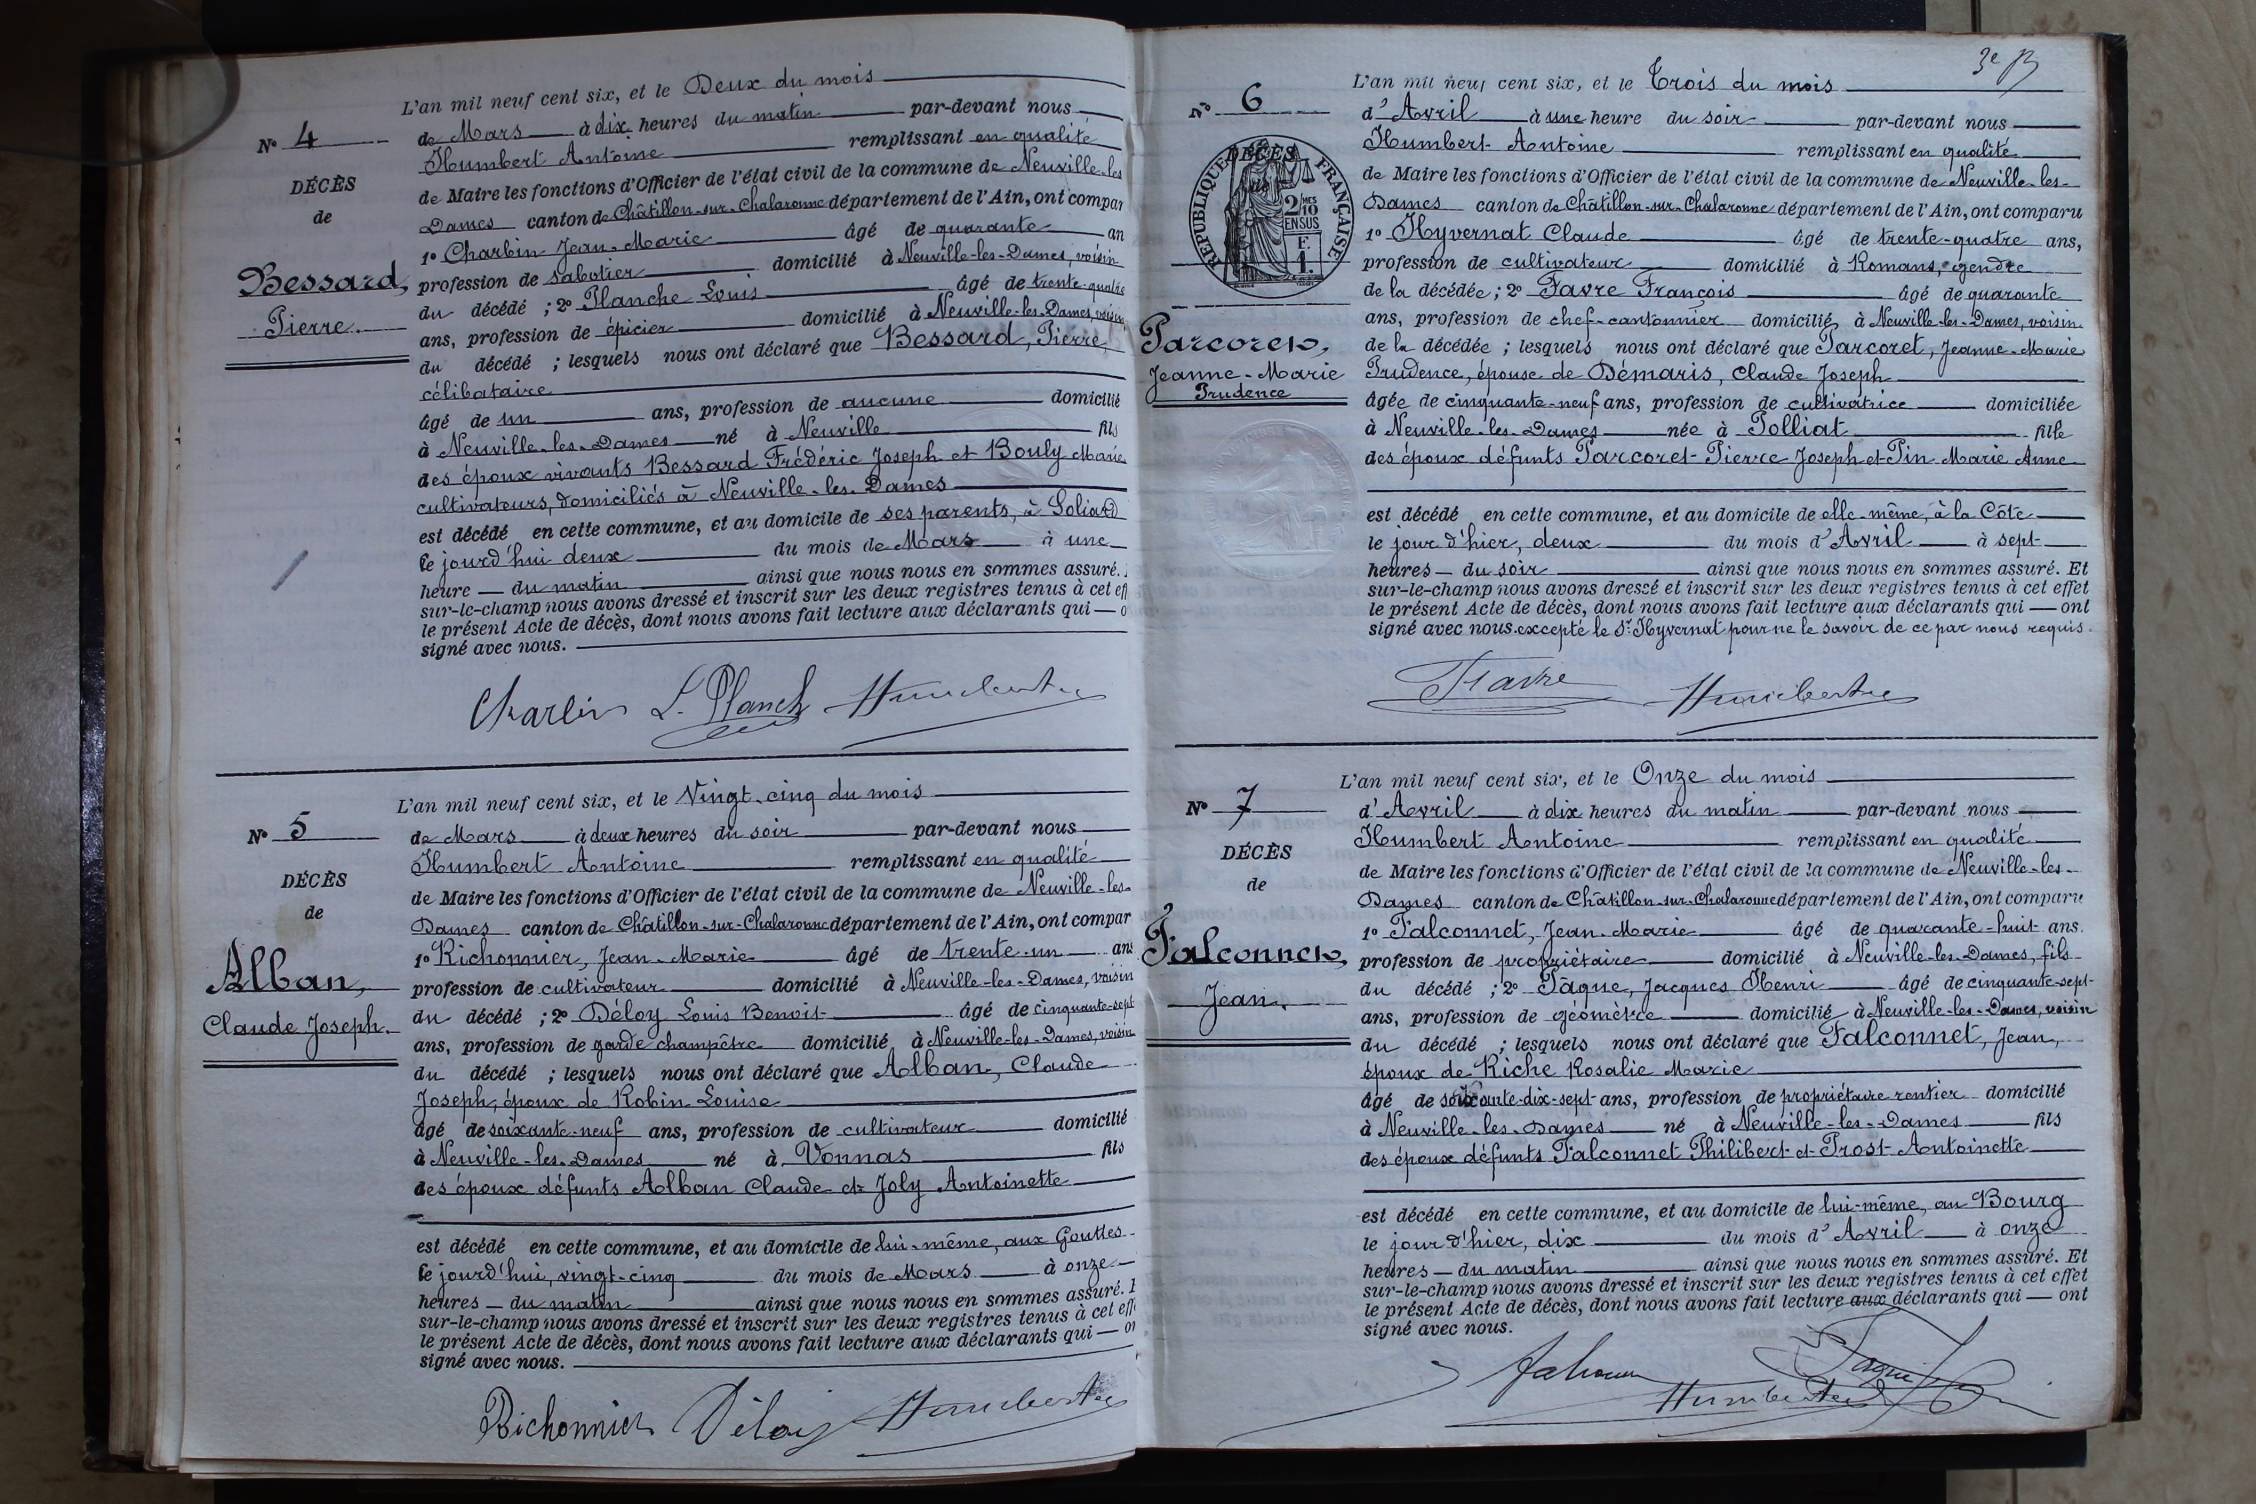 L'an mil neuf cent six, et le Deux du mois
Nº 4
de Mars à dix heures du matin par-devant nous
Humbert Antoine remplissant en qualité
DÉCÈS
de Maire les fonctions d'Officier de l'état civil de la commune de Neuville-les
de
Dames canton de Châtillon-sur-Chalaronne département de l'Ain, ont compar
1º Charbin Jean-Marie âgé de quarante an
Bessard,
profession de sabotier domicilié à Neuville-les-Dames, voisin
du décédé ; 2º Planche Louis âgé de trente-quatre
Pierre
ans, profession de épicier domicilié à Neuville-les-Dames, voisin
du décédé ; lesquels nous ont déclaré que Bessard, Pierre,
célibataire
âgé de un ans, profession de aucune domicilié
à Neuville-les-Dames né à Neuville fils
des époux vivants Bessard Frédéric Joseph et Bouly Marie
cultivateurs, domiciliés à Neuville-les-Dames
est décédé en cette commune, et au domicile de ses parents, à Soliard
le jourd'hui deux du mois de Mars à une
heure du matin ainsi que nous nous en sommes assuré.
sur-le-champ nous avons dressé et inscrit sur les deux registres tenus à cet eff
le présent Acte de décès, dont nous avons fait lecture aux déclarants qui — o
signé avec nous.
Charbin L. Planche Humbert Ane
L'an mil neuf cent six, et le Vingt-cinq du mois
Nº 5
de Mars à deux heures du soir par-devant nous
Humbert Antoine remplissant en qualité
DÉCÈS
de Maire les fonctions d'Officier de l'état civil de la commune de Neuville-les-
de
Dames canton de Châtillon-sur-Chalaronne département de l'Ain, ont compar
1º Richonnier, Jean-Marie âgé de trente-un ans
Alban,
profession de cultivateur domicilié à Neuville-les-Dames, voisin
du décédé ; 2º Déloy Louis Benoit âgé de cinquante-sept
Claude Joseph.
ans, profession de garde champêtre domicilié à Neuville-les-Dames, voisin
du décédé ; lesquels nous ont déclaré que Alban, Claude
Joseph, époux de Robin Louise
âgé de soixante-neuf ans, profession de cultivateur domicilié
à Neuville-les-Dames né à Vonnas fils
des époux défunts Alban Claude et Joly Antoinette
est décédé en cette commune, et au domicile de lui-même, aux Gouttes
le jourd'hui, vingt-cinq du mois de Mars à onze
heures — du matin ainsi que nous nous en sommes assuré. E
sur-le-champ nous avons dressé et inscrit sur les deux registres tenus à cet eff
le présent Acte de décès, dont nous avons fait lecture aux déclarants qui — on
signé avec nous.
Richonnier Déloy Humbert Ane
3e
L'an mil neuf cent six, et le Trois du mois
Nº 6
d'Avril à une heure du soir par-devant nous
Humbert Antoine remplissant en qualité
DÉCÈS
de
RÉPUBLIQUE FRANÇAISE
2/10 MES
EN SUS
F.
1.
de Maire les fonctions d'Officier de l'état civil de la commune de Neuville-les-
Dames canton de Châtillon-sur-Chalaronne département de l'Ain, ont comparu
1º Hyvernat Claude âgé de trente-quatre ans,
profession de cultivateur domicilié à Romans, gendre
de la décédée ; 2º Favre François âgé de quarante
ans, profession de chef-cantonnier domicilié à Neuville-les-Dames, voisin
Parcoret,
de la décédée ; lesquels nous ont déclaré que Parcoret, Jeanne-Marie
Jeanne-Marie
Prudence, épouse de Démaris, Claude Joseph
Prudence
âgée de cinquante-neuf ans, profession de cultivatrice domiciliée
à Neuville-les-Dames née à Polliat fille
des époux défunts Parcoret Pierre Joseph et Pin Marie Anne
est décédé en cette commune, et au domicile de elle-même, à la Côte
le jour d'hier, deux du mois d'Avril à sept
heures — du soir ainsi que nous nous en sommes assuré. Et
sur-le-champ nous avons dressé et inscrit sur les deux registres tenus à cet effet
le présent Acte de décès, dont nous avons fait lecture aux déclarants qui — ont
signé avec nous. excepté le Sr. Hyvernat pour ne le savoir de ce par nous requis.
Favre Humbert Ane
L'an mil neuf cent six, et le Onze du mois
Nº 7
d'Avril à dix heures du matin par-devant nous
Humbert Antoine remplissant en qualité
DÉCÈS
de Maire les fonctions d'Officier de l'état civil de la commune de Neuville-les-
de
Dames canton de Châtillon-sur-Chalaronne département de l'Ain, ont comparu
1º Falconnet, Jean-Marie âgé de quarante-huit ans.
Falconnet,
profession de propriétaire domicilié à Neuville-les-Dames, fils
du décédé ; 2º Pâque, Jacques Henri âgé de cinquante-sept
Jean.
ans, profession de géomètre domicilié à Neuville-les-Dames, voisin
du décédé ; lesquels nous ont déclaré que Falconnet, Jean,
époux de Riche Rosalie Marie
âgé de soixante-dix-sept ans, profession de propriétaire rentier domicilié
à Neuville-les-Dames né à Neuville-les-Dames fils
des époux défunts Falconnet Philibert et Prost Antoinette
est décédé en cette commune, et au domicile de lui-même, au Bourg
le jour d'hier, dix du mois d'Avril à onze
heures — du matin ainsi que nous nous en sommes assuré. Et
sur-le-champ nous avons dressé et inscrit sur les deux registres tenus à cet effet
le présent Acte de décès, dont nous avons fait lecture aux déclarants qui — ont
signé avec nous.
Falconnet Pâque
Humbert Ane